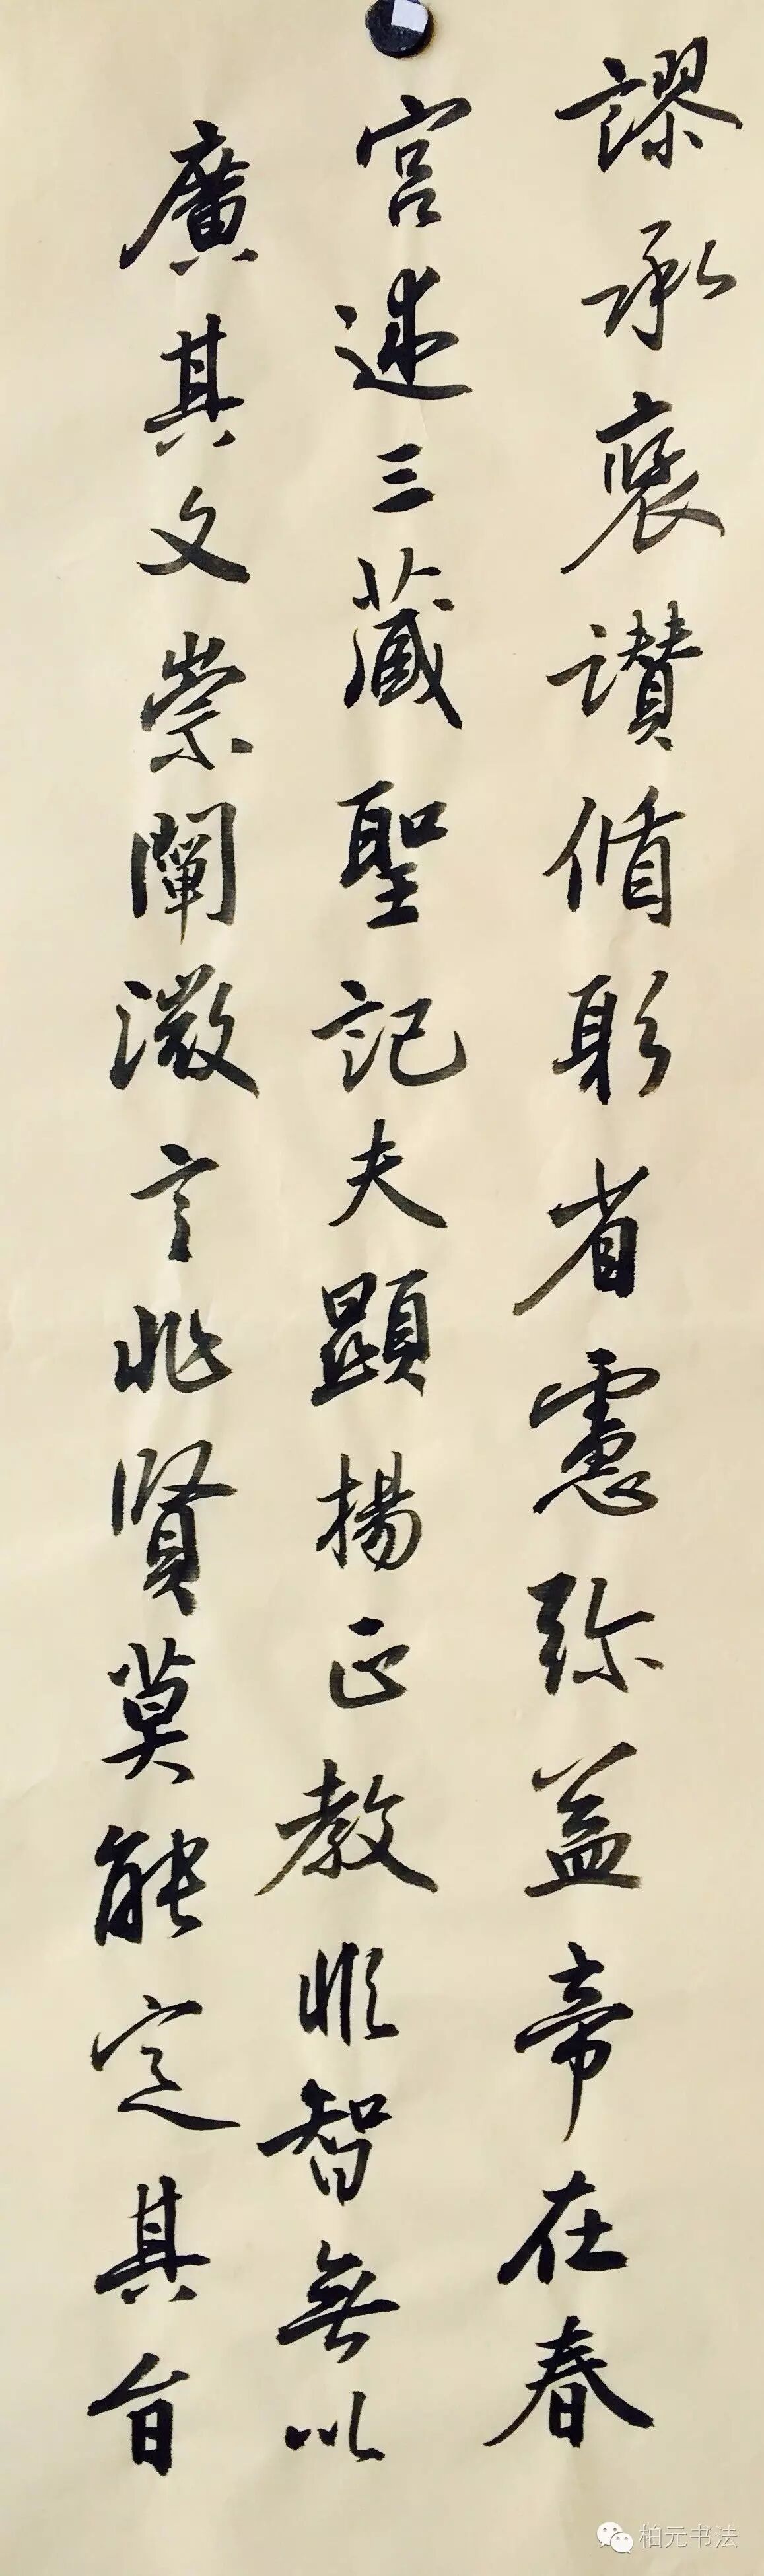 謬承褒讚循躬省慮弥益帝在春
宮述三藏聖記夫顯揚正教非智無以
廣其文崇闡微言非賢莫能定其旨
柏元书法